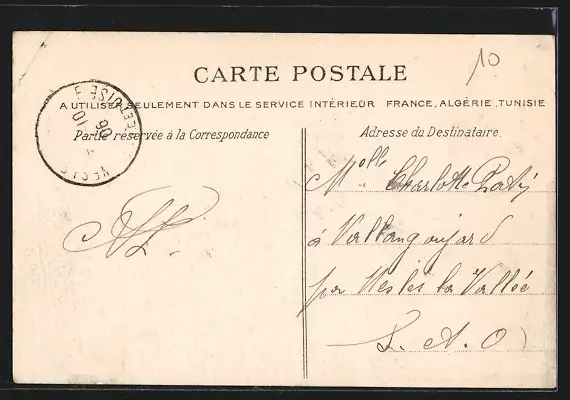 10
CARTE POSTALE
A UTILISER SEULEMENT DANS LE SERVICE INTÉRIEUR FRANCE, ALGÉRIE, TUNISIE
Partie réservée à la Correspondance
Adresse du Destinataire.
Melle Charlotte
à Vallangoujard
par Nesles la Vallée
S. A. O
ET-OISE
10
06
NESLE